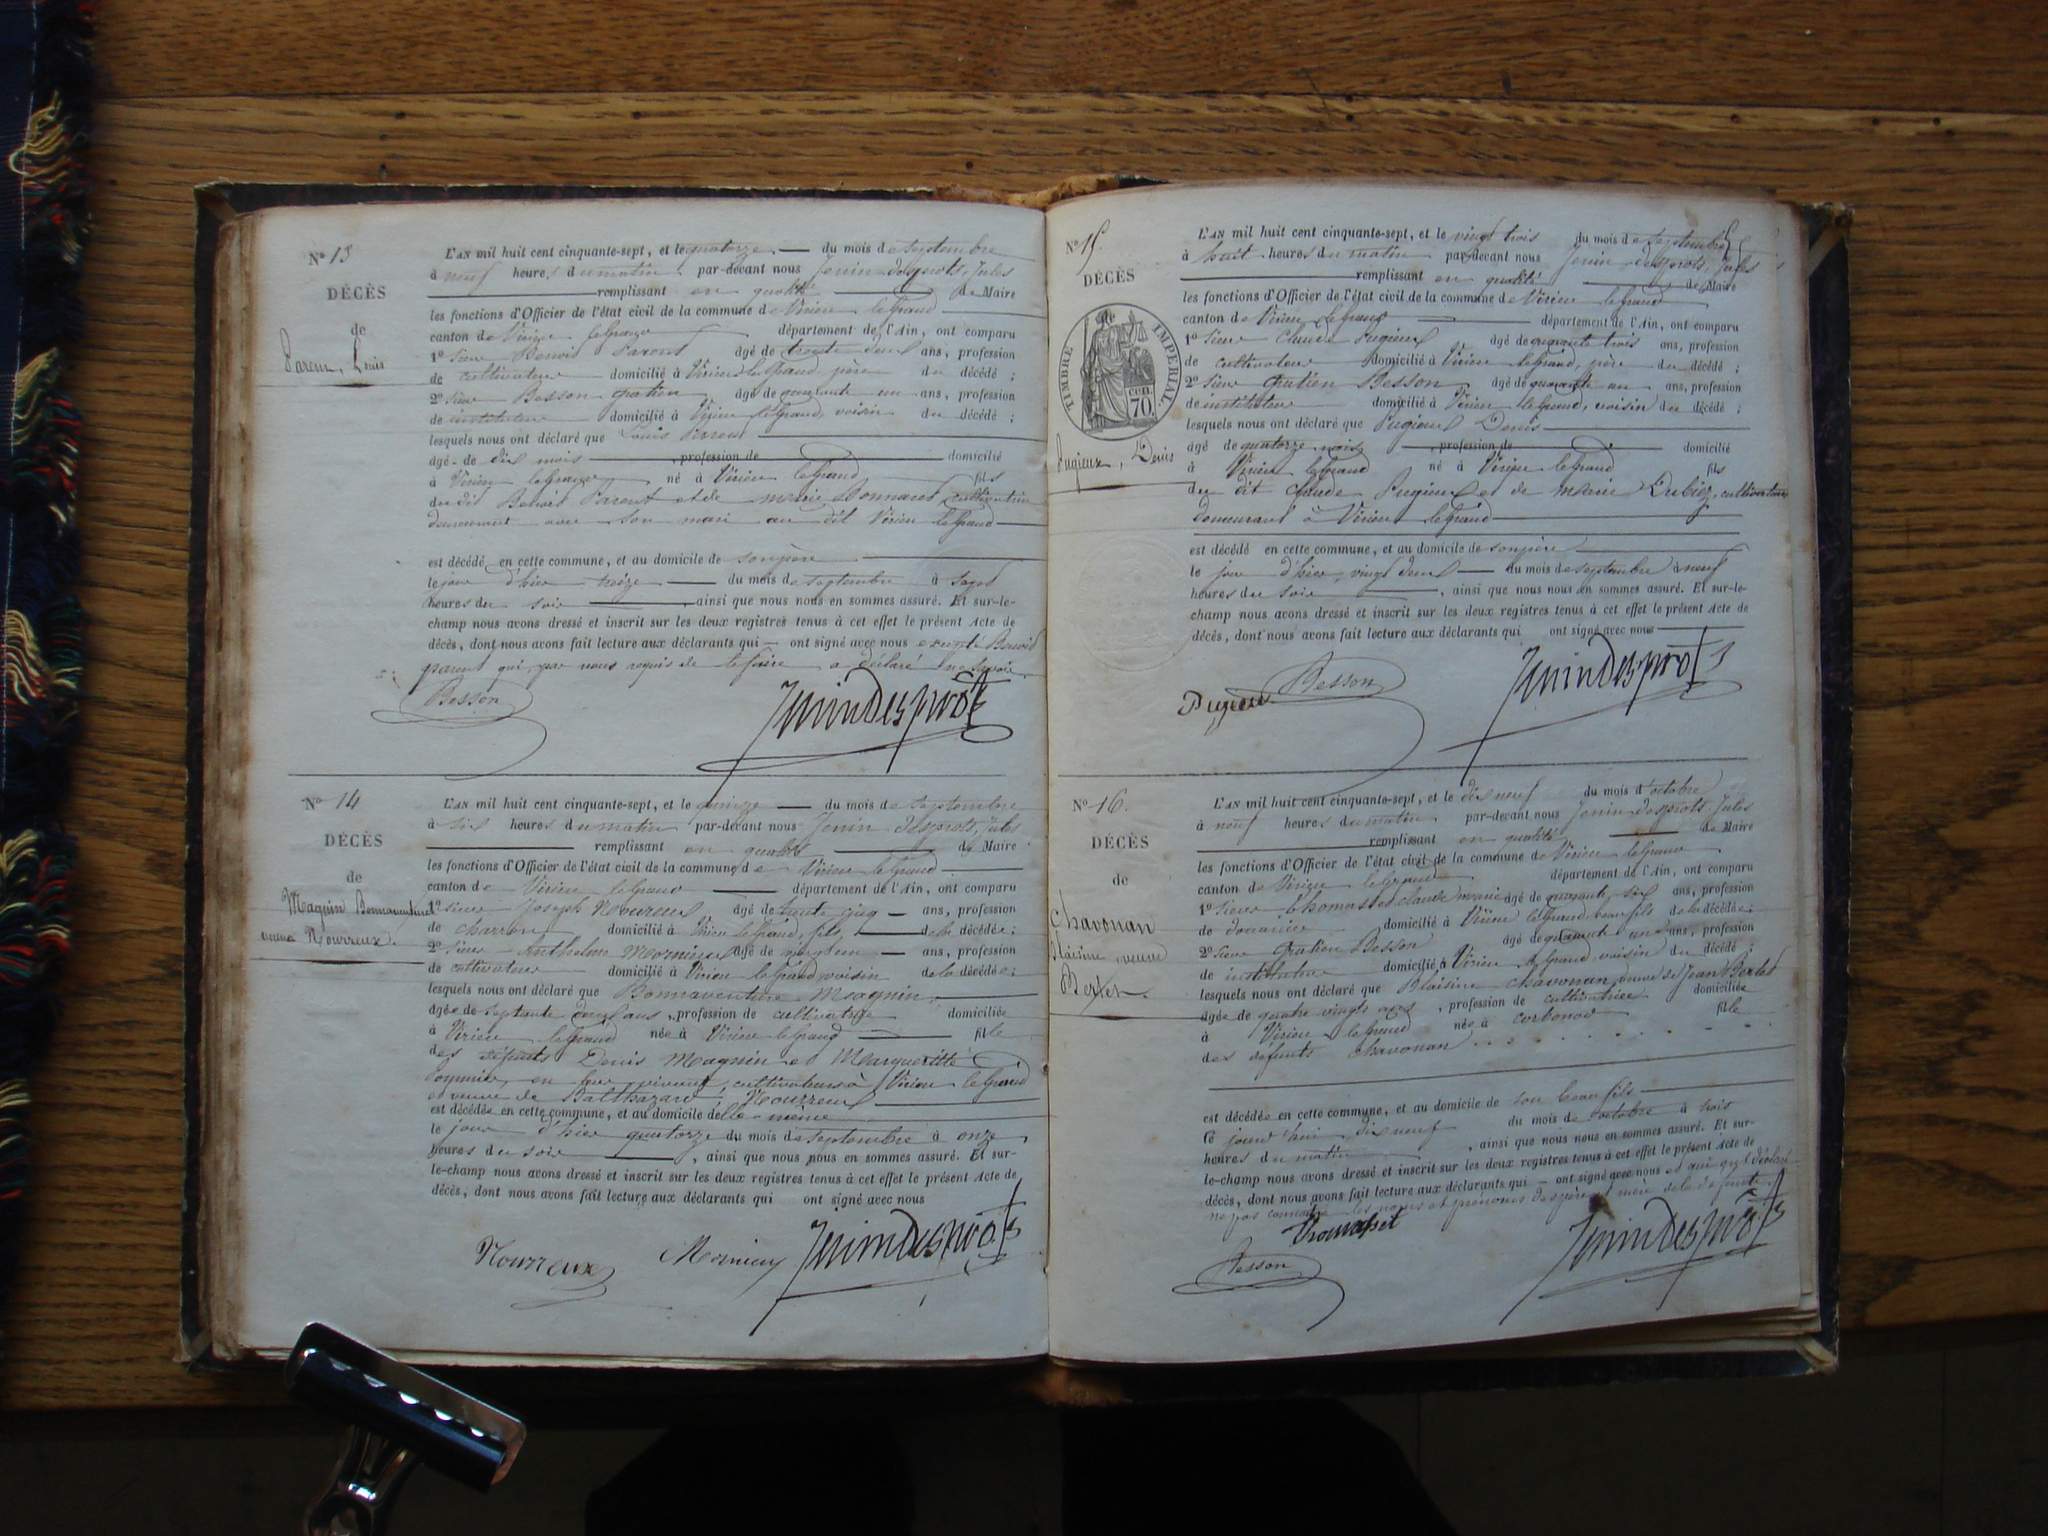 Nº 13
DÉCÈS
de
Parent, Louis
L'AN mil huit cent cinquante-sept, et le quatorze du mois de septembre
à neuf heures du matin par-devant nous Jenin-desprots, Jules
remplissant en qualité de Maire
les fonctions d'Officier de l'état civil de la commune de Virieu le grand
canton de Virieu le grand département de l'Ain, ont comparu
1º sieur Benoit Parent âgé de trente deux ans, profession
de cultivateur domicilié à Virieu le grand père du décédé ;
2º sieur Besson gratien âgé de quarante un ans, profession
de instituteur domicilié à Virieu le grand, voisin du décédé ;
lesquels nous ont déclaré que Louis Parent
âgé de dix mois profession de domicilié
à Virieu le grand né à Virieu le grand fils
du dit Benoit Parent et de marie Bonnaret cultivatrice
demeurant avec son mari au dit Virieu le grand
est décédé en cette commune, et au domicile de son père
le jour d'hier treize du mois de septembre à sept
heures du soir ainsi que nous nous en sommes assuré. Et sur-le-
champ nous avons dressé et inscrit sur les deux registres tenus à cet effet le présent Acte de
décès, dont nous avons fait lecture aux déclarants qui ont signé avec nous excepté Benoit
parent qui, par nous requis de le faire a déclaré ne savoir
Besson Jenindesprots
Nº 14
DÉCÈS
de
Magnin Bonnaventure
veuve Nourreux.
L'AN mil huit cent cinquante-sept, et le quinze du mois de septembre
à six heures du matin par-devant nous Jenin-desprots, Jules
remplissant en qualité de Maire
les fonctions d'Officier de l'état civil de la commune de Virieu le grand
canton de Virieu le grand département de l'Ain, ont comparu
1º sieur Joseph Nourreux âgé de trente cinq ans, profession
de charron domicilié à Virieu le grand, fils, de la décédée ;
2º sieur Anthelme Mornieux âgé de ans, profession
de cultivateur domicilié à Virieu le grand voisin de la décédée ;
lesquels nous ont déclaré que Bonnaventure Magnin,
âgée de septante ans, profession de cultivatrice domiciliée
à Virieu le grand née à Virieu le grand fille
des défunts Denis Magnin et Margueritte
en leur vivant, cultivateurs à Virieu le grand
et veuve de Balthazard Nourreux
est décédée en cette commune, et au domicile d'elle-même
le jour d'hier quatorze du mois de septembre à onze
heures du soir, ainsi que nous nous en sommes assuré. Et sur-
le-champ nous avons dressé et inscrit sur les deux registres tenus à cet effet le présent Acte de
décès, dont nous avons fait lecture aux déclarants qui ont signé avec nous
Nourreux Mornieux Jenindesprots
Nº 15
DÉCÈS
TIMBRE IMPERIAL.
CEN. 70.
Pugieux, Denis
L'AN mil huit cent cinquante-sept, et le vingt trois du mois de septembre
à huit heures du matin par-devant nous Jenin-desprots, Jules
remplissant en qualité de Maire
les fonctions d'Officier de l'état civil de la commune de Virieu le grand
canton de Virieu le grand département de l'Ain, ont comparu
1º sieur Claude Pugieux âgé de quarante trois ans, profession
de cultivateur domicilié à Virieu le grand, père du décédé ;
2º sieur Gratien Besson âgé de quarante un ans, profession
de instituteur domicilié à Virieu le grand, voisin du décédé ;
lesquels nous ont déclaré que Pugieux Denis
âgé de quatorze mois, profession de domicilié
à Virieu le grand né à Virieu le grand fils
du dit Claude Pugieux et de marie Dubiez, cultivateurs
demeurant à Virieu le grand
est décédé en cette commune, et au domicile de son père
le jour d'hier, vingt deux du mois de septembre à neuf
heures du soir, ainsi que nous nous en sommes assuré. Et sur-le-
champ nous avons dressé et inscrit sur les deux registres tenus à cet effet le présent Acte de
décès, dont nous avons fait lecture aux déclarants qui ont signé avec nous
Pugieux Besson Jenindesprots
Nº 16.
DÉCÈS
de
Chavonan
Blaisine, veuve
Bertet.
L'AN mil huit cent cinquante-sept, et le dix neuf du mois d'octobre
à neuf heures du matin par-devant nous Jenin-desprots, Jules
remplissant en qualité de Maire
les fonctions d'Officier de l'état civil de la commune de Virieu le grand
canton de Virieu le grand département de l'Ain, ont comparu
1º sieur claude marie âgé de quarante six ans, profession
de domicilié à Virieu le grand beau fils de la décédée ;
2º sieur Gratien Besson âgé de quarante un ans, profession
de instituteur domicilié à Virieu le grand voisin du décédé ;
lesquels nous ont déclaré que Blaisine Chavonan, veuve de Jean Bertet
âgée de quatre vingts ans, profession de cultivatrice domiciliée
à Virieu le grand née à corbonod fille
des défunts chavonan
est décédée en cette commune, et au domicile de son beau fils
le jourd'hui dix neuf du mois de octobre à trois
heures du matin, ainsi que nous nous en sommes assuré. Et sur-
le-champ nous avons dressé et inscrit sur les deux registres tenus à cet effet le présent Acte de
décès, dont nous avons fait lecture aux déclarants qui ont signé avec nous et qui ont déclaré
ne pas connaître les noms et prénoms des père et mère de la défunte
Besson Jenindesprots